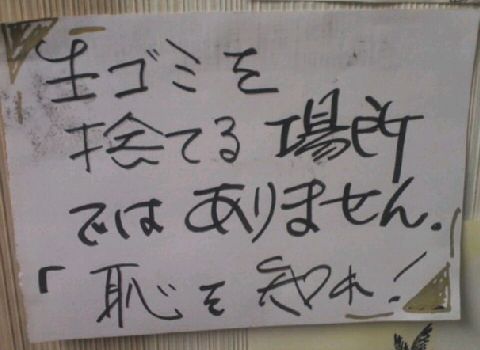 生ゴミを
捨てる場所
ではありません。
「恥を知れ!